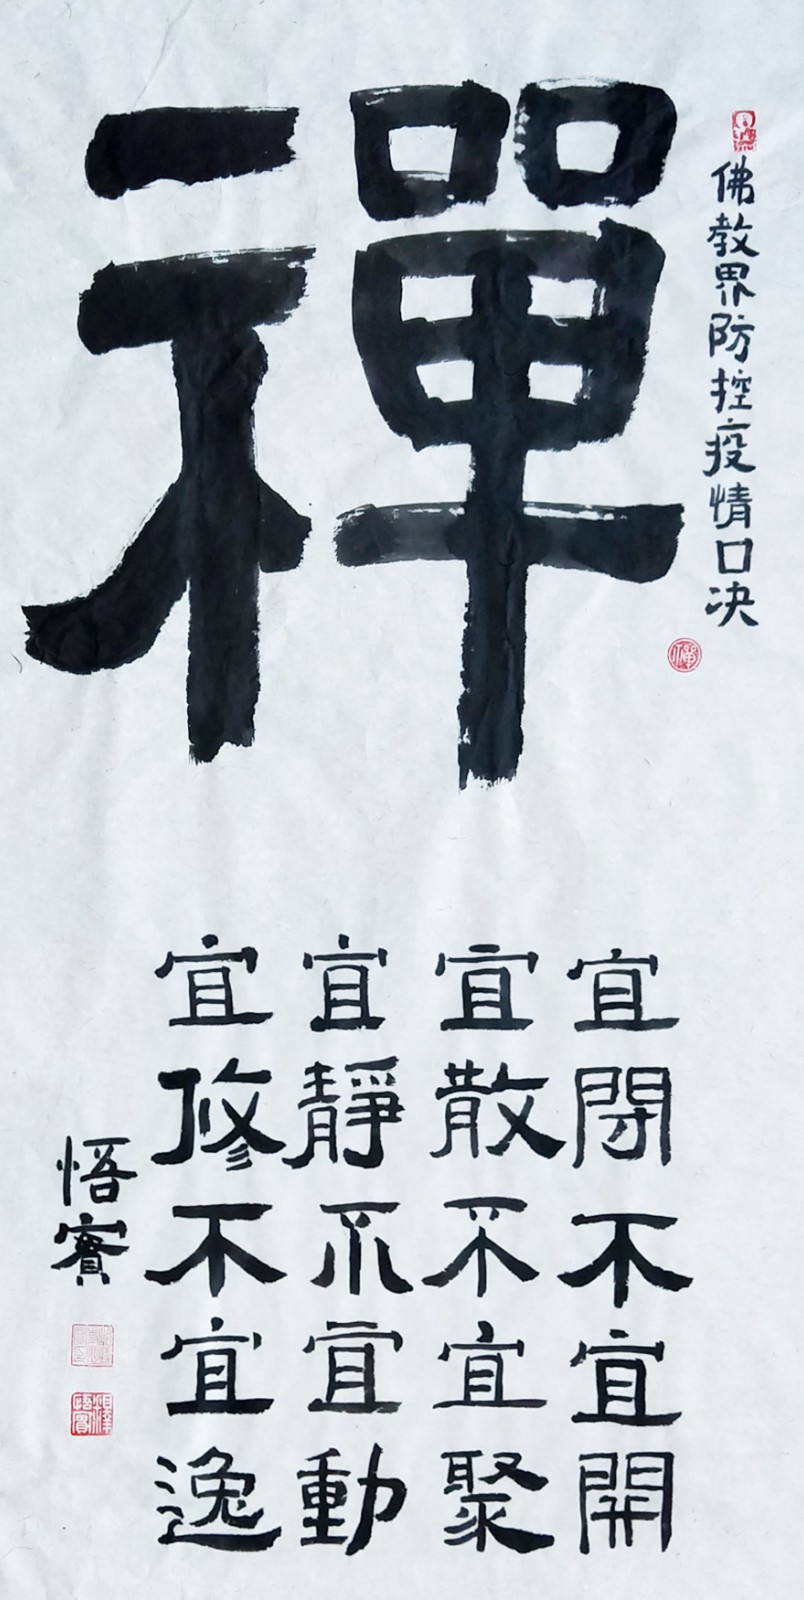 佛教界防控疫情口决
禪
宜閉不宜開
宜散不宜聚
宜靜不宜動
宜修不宜逸
悟實